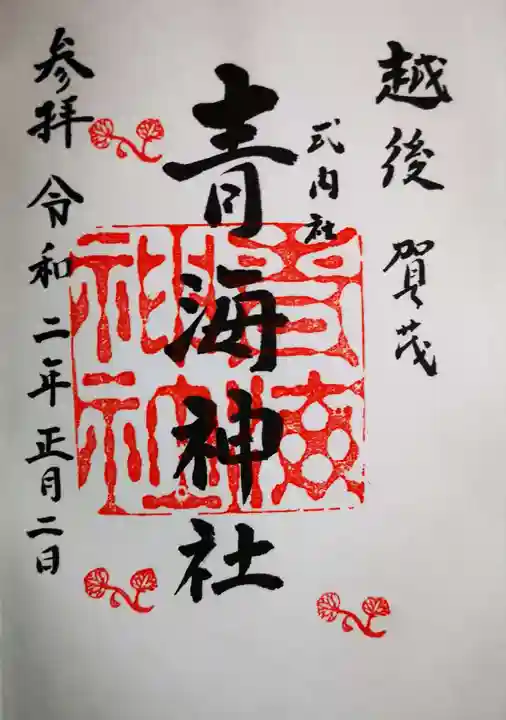 越後 賀茂
式内社
青海神社
参拝 令和二年正月二日
青海神社